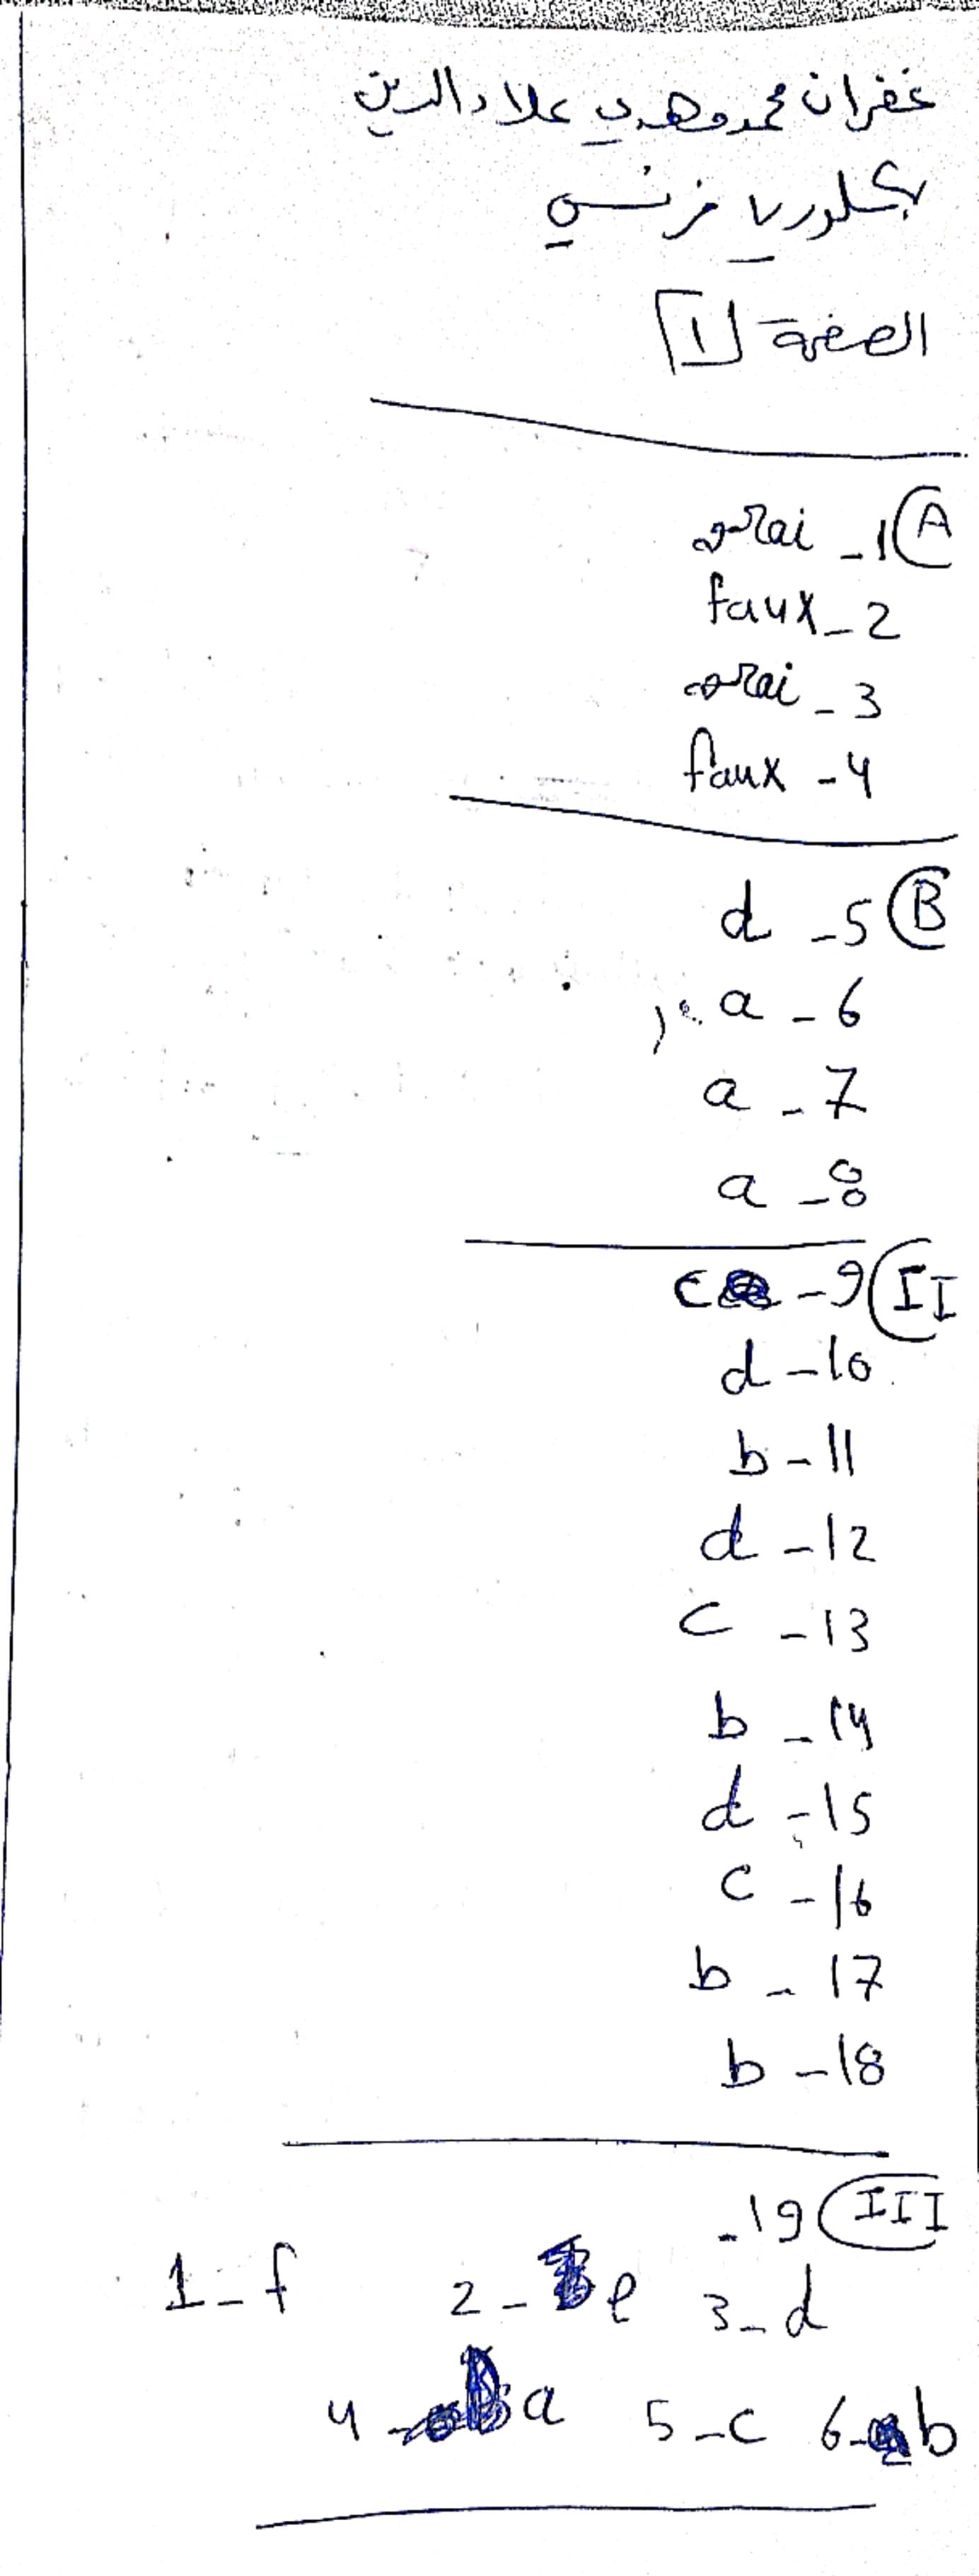 غفران محمد وهبي علاء الدين
بكلوريا فرنسي
الصفحة 1
A 1- vrai
2- faux
3- vrai
4- faux
B 5- d
6- a
7- a
8- a
II 9- c
10- d
11- b
12- d
13- c
14- b
15- d
16- c
17- b
18- b
III 19-
1-f 2- e 3-d
4- a 5-c 6- b